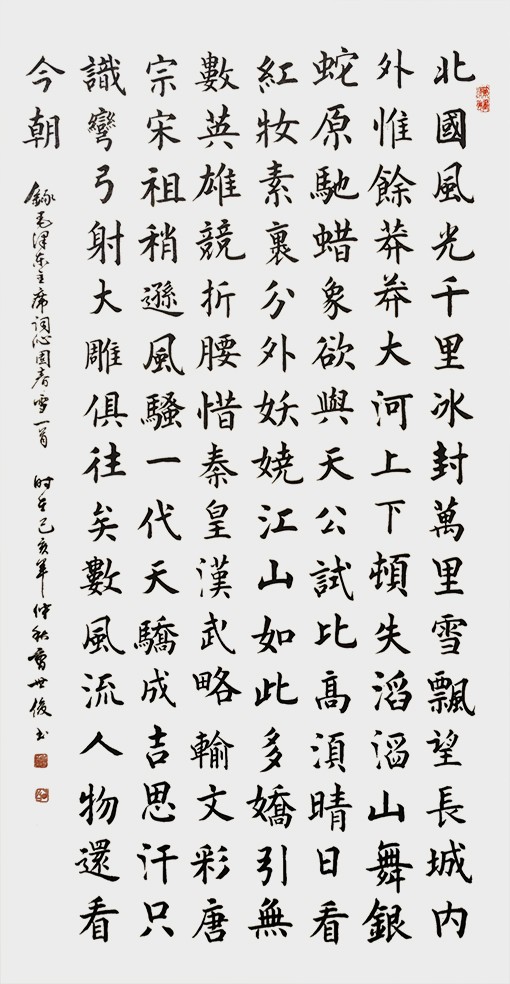 北國風光千里冰封萬里雪飄望長城内
外惟餘莽莽大河上下頓失滔滔山舞銀
蛇原馳蜡象欲與天公試比高湏晴日看
紅妝素裹分外妖嬈江山如此多嬌引無
數英雄競折腰惜秦皇漢武略輸文彩唐
宗宋祖稍遜風騷一代天驕成吉思汗只
識彎弓射大雕俱往矣數風流人物還看
今朝
錄毛泽东主席词沁园春雪一首 时在己亥年仲秋曹世俊书